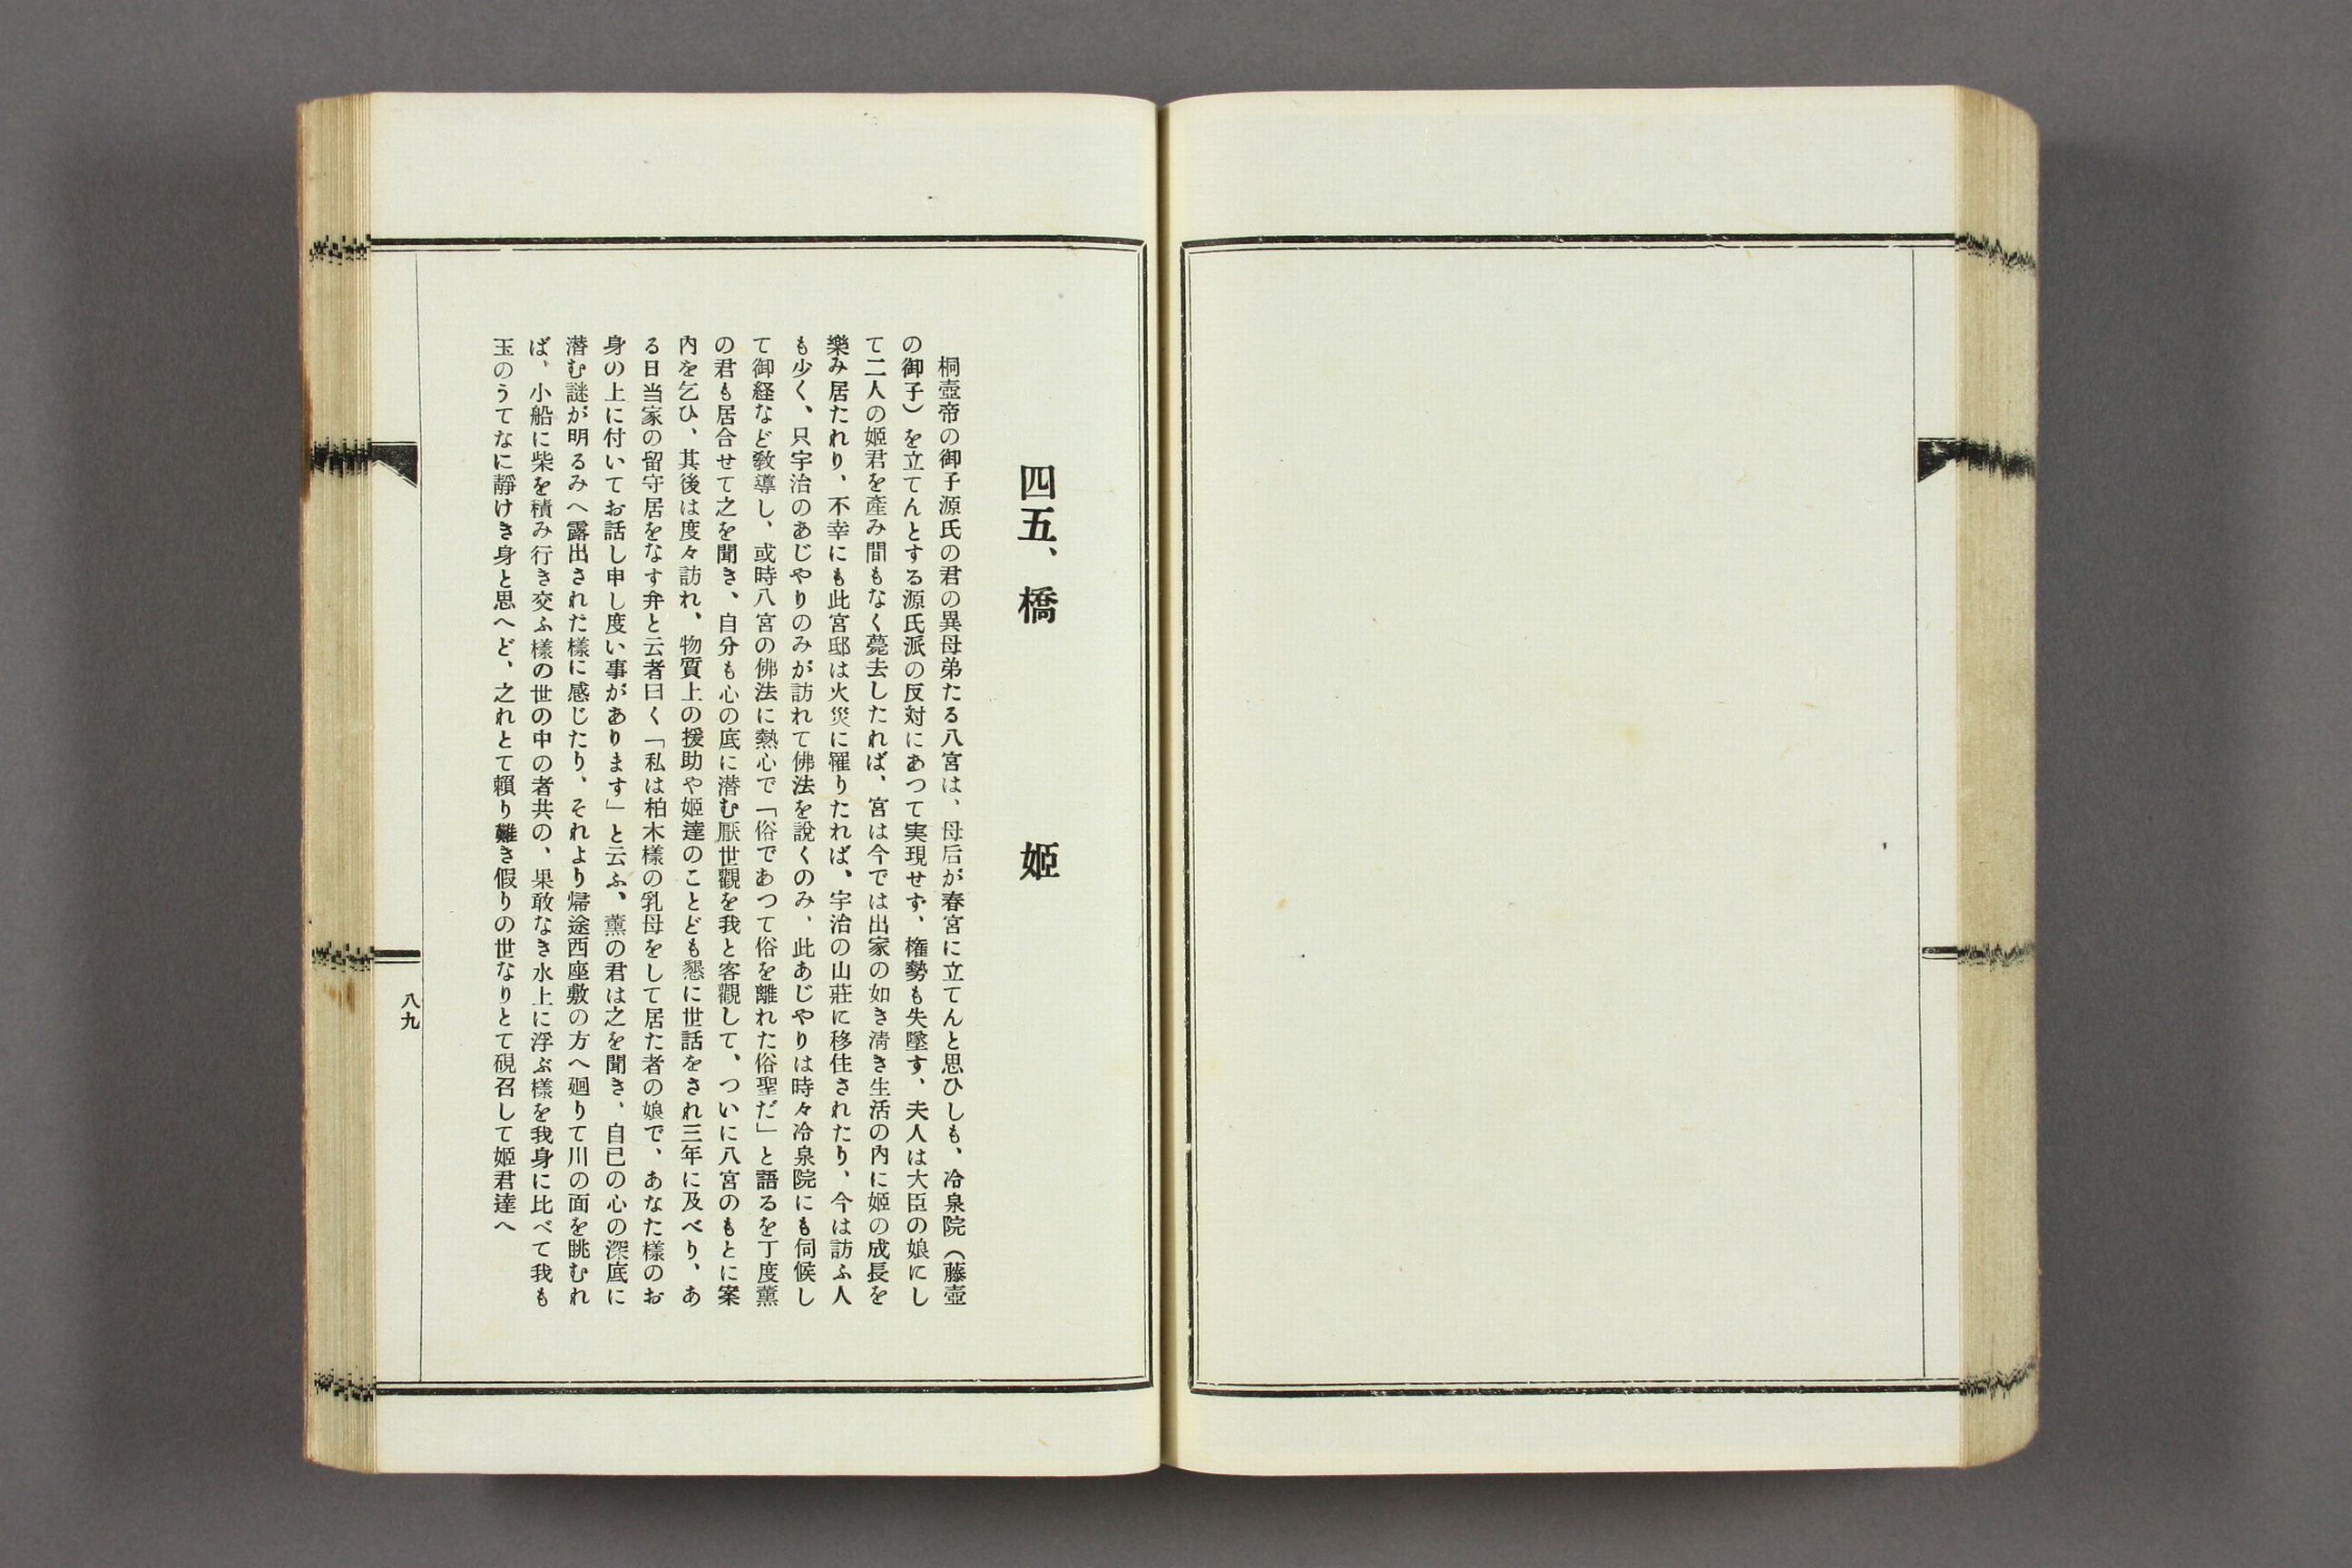 四五、橋　姫
桐壺帝の御子源氏の君の異母弟たる八宮は、母后が春宮に立てんと思ひしも、冷泉院（藤壺
の御子）を立てんとする源氏派の反対にあつて実現せず、権勢も失墜す、夫人は大臣の娘にし
て二人の姫君を産み間もなく薨去したれば、宮は今では出家の如き清き生活の内に姫の成長を
樂み居たれり、不幸にも此宮邸は火災に罹りたれば、宇治の山荘に移住されたり、今は訪ふ人
も少く、只宇治のあじやりのみが訪れて佛法を說くのみ、此あじやりは時々冷泉院にも伺候し
て御経など教導し、或時八宮の佛法に熱心で「俗であつて俗を離れた俗聖だ」と語るを丁度薫
の君も居合せて之を聞き、自分も心の底に潜む厭世觀を我と客觀して、ついに八宮のもとに案
内を乞ひ、其後は度々訪れ、物質上の援助や姫達のことども懇に世話をされ三年に及べり、あ
る日当家の留守居をなす弁と云者曰く「私は柏木樣の乳母をして居た者の娘で、あなた樣のお
身の上に付いてお話し申し度い事があります」と云ふ、薫の君は之を聞き、自己の心の深底に
潜む謎が明るみへ露出された樣に感じたり、それより帰途西座敷の方へ廻りて川の面を眺むれ
ば、小船に柴を積み行き交ふ樣の世の中の者共の、果敢なき水上に浮ぶ樣を我身に比べて我も
玉のうてなに靜けき身と思へど、之れとて賴り難き假りの世なりとて硯召して姫君達へ
八九